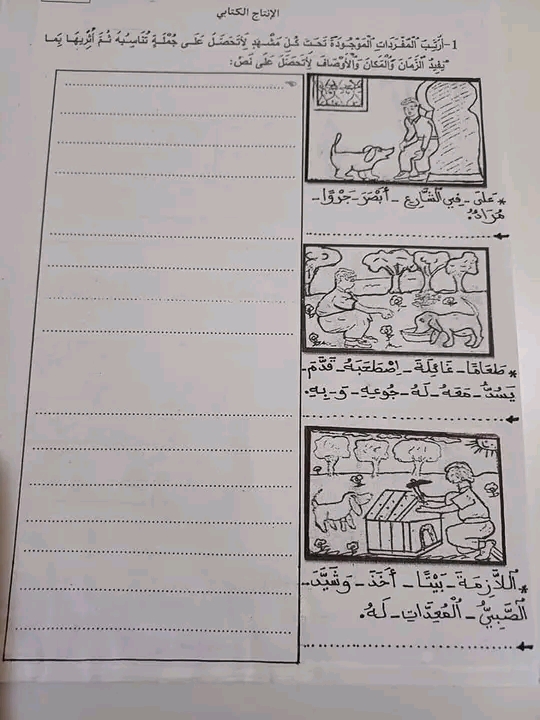 الإنتاج الكتابي
1-أرَتِّبُ الْمُفْرَدَاتِ الْمَوْجُودَةَ تَحْتَ كُلِّ مَشْهَدٍ لِأَتَحَصَّلَ عَلَى جُمْلَةٍ تُنَاسِبُهُ ثُمَّ أُثْرِيهَا بِمَا
يُفِيدُ الزَّمَانَ وَالْمَكَانَ وَالْأَوْصَافَ لِأَتَحَصَّلَ عَلَى نَصٍّ:
*عَلِيٌّ - فِي الشَّارِعِ - أَبْصَرَ - جَرْوًا -
*طَعَامًا - عَائِلَةَ - اِصْطَحَبَهُ - قَدَّمَ -
يَسُدُّ - مَعَهُ - لَهُ - جُوعِهِ - وَ - بِهِ.
*اللَّازِمَةَ - بَيْتًا - أَخَذَ - وَشَيَّدَ -
الصَّبِيُّ - الْمُعِدَّاتِ - لَهُ.